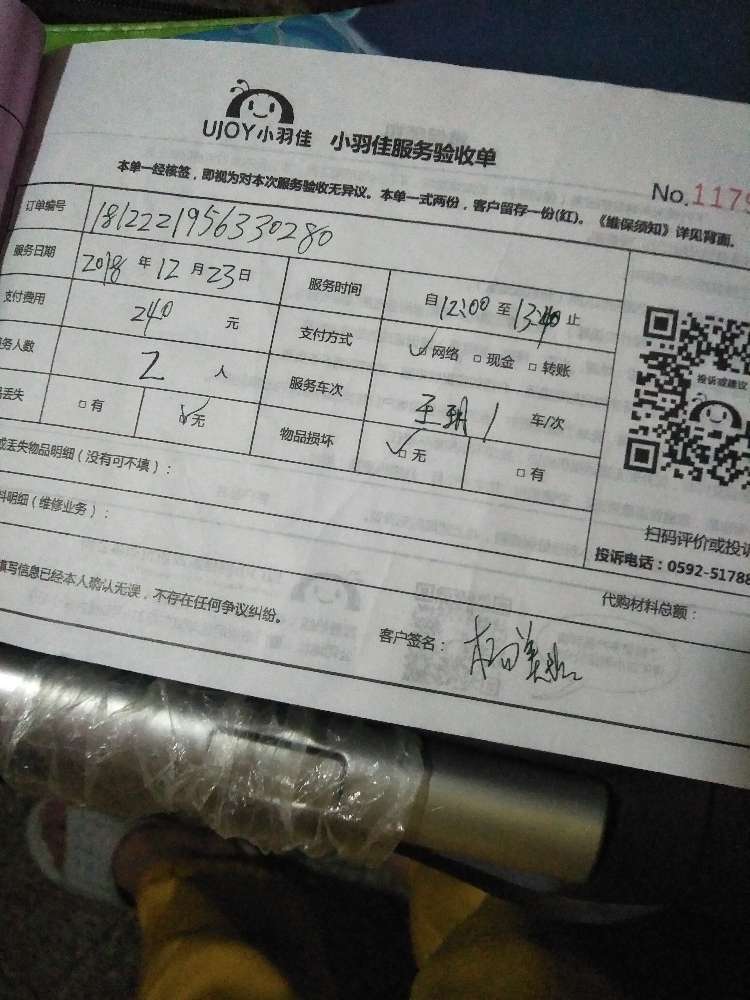 UJOY小羽佳 小羽佳服务验收单
本单一经核签，即视为对本次服务验收无异议。本单一式两份，客户留存一份(红)。《维保须知》详见背面。
No.1179
订单编号 1812221956330280
服务日期 2018 年 12 月 23 日 服务时间 自 12:00 至 13:40 止
支付费用 240 元 支付方式 ☑网络 □现金 □转账
务人数 2 人 服务车次 1 车/次
丢失 □有 ☑无 物品损坏 ☑无 □有
投诉或建议
或丢失物品明细（没有可不填）：
料明细（维修业务）：
扫码评价或投诉
投诉电话：0592-51788
代购材料总额：
填写信息已经本人确认无误，不存在任何争议纠纷。
客户签名：